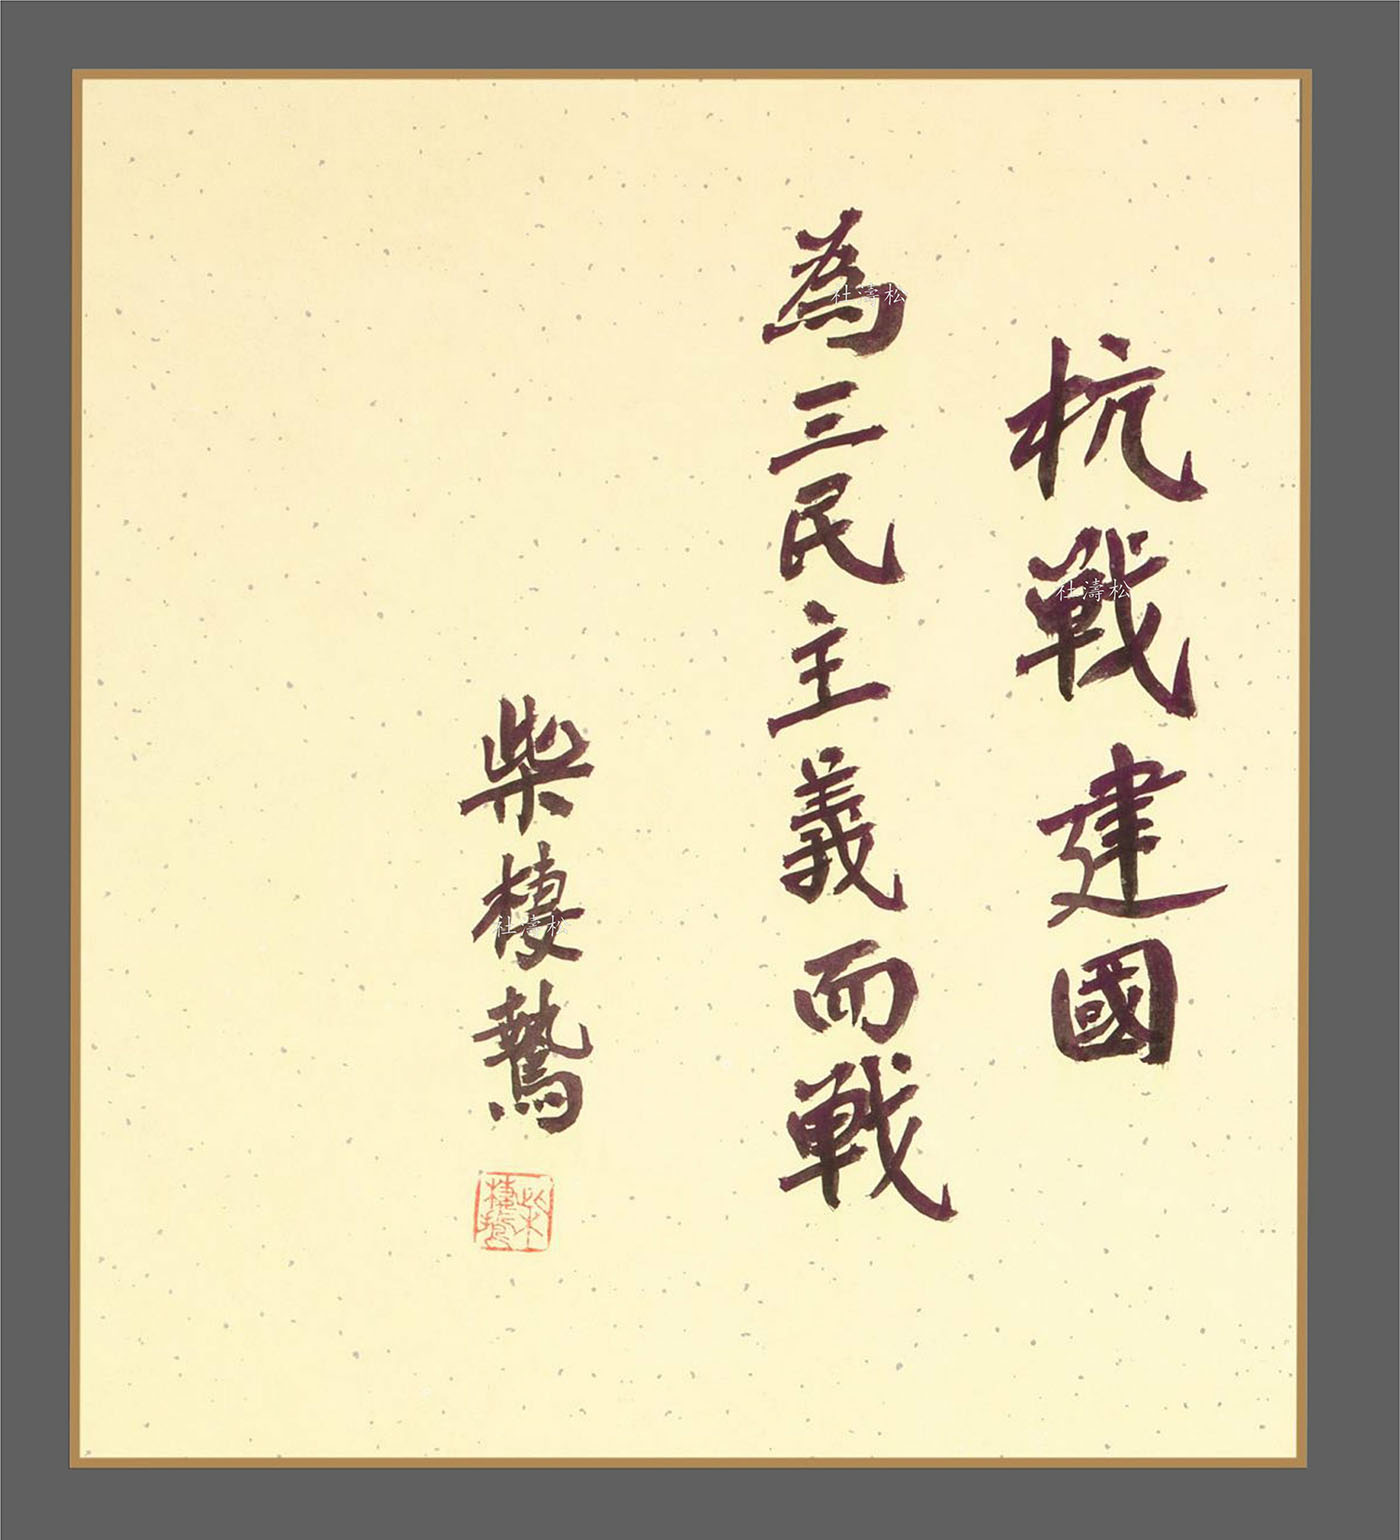 抗戦建國
為三民主義而戦
柴棲鷙
柴
棲鷙
杜濤松
杜濤松
杜濤松